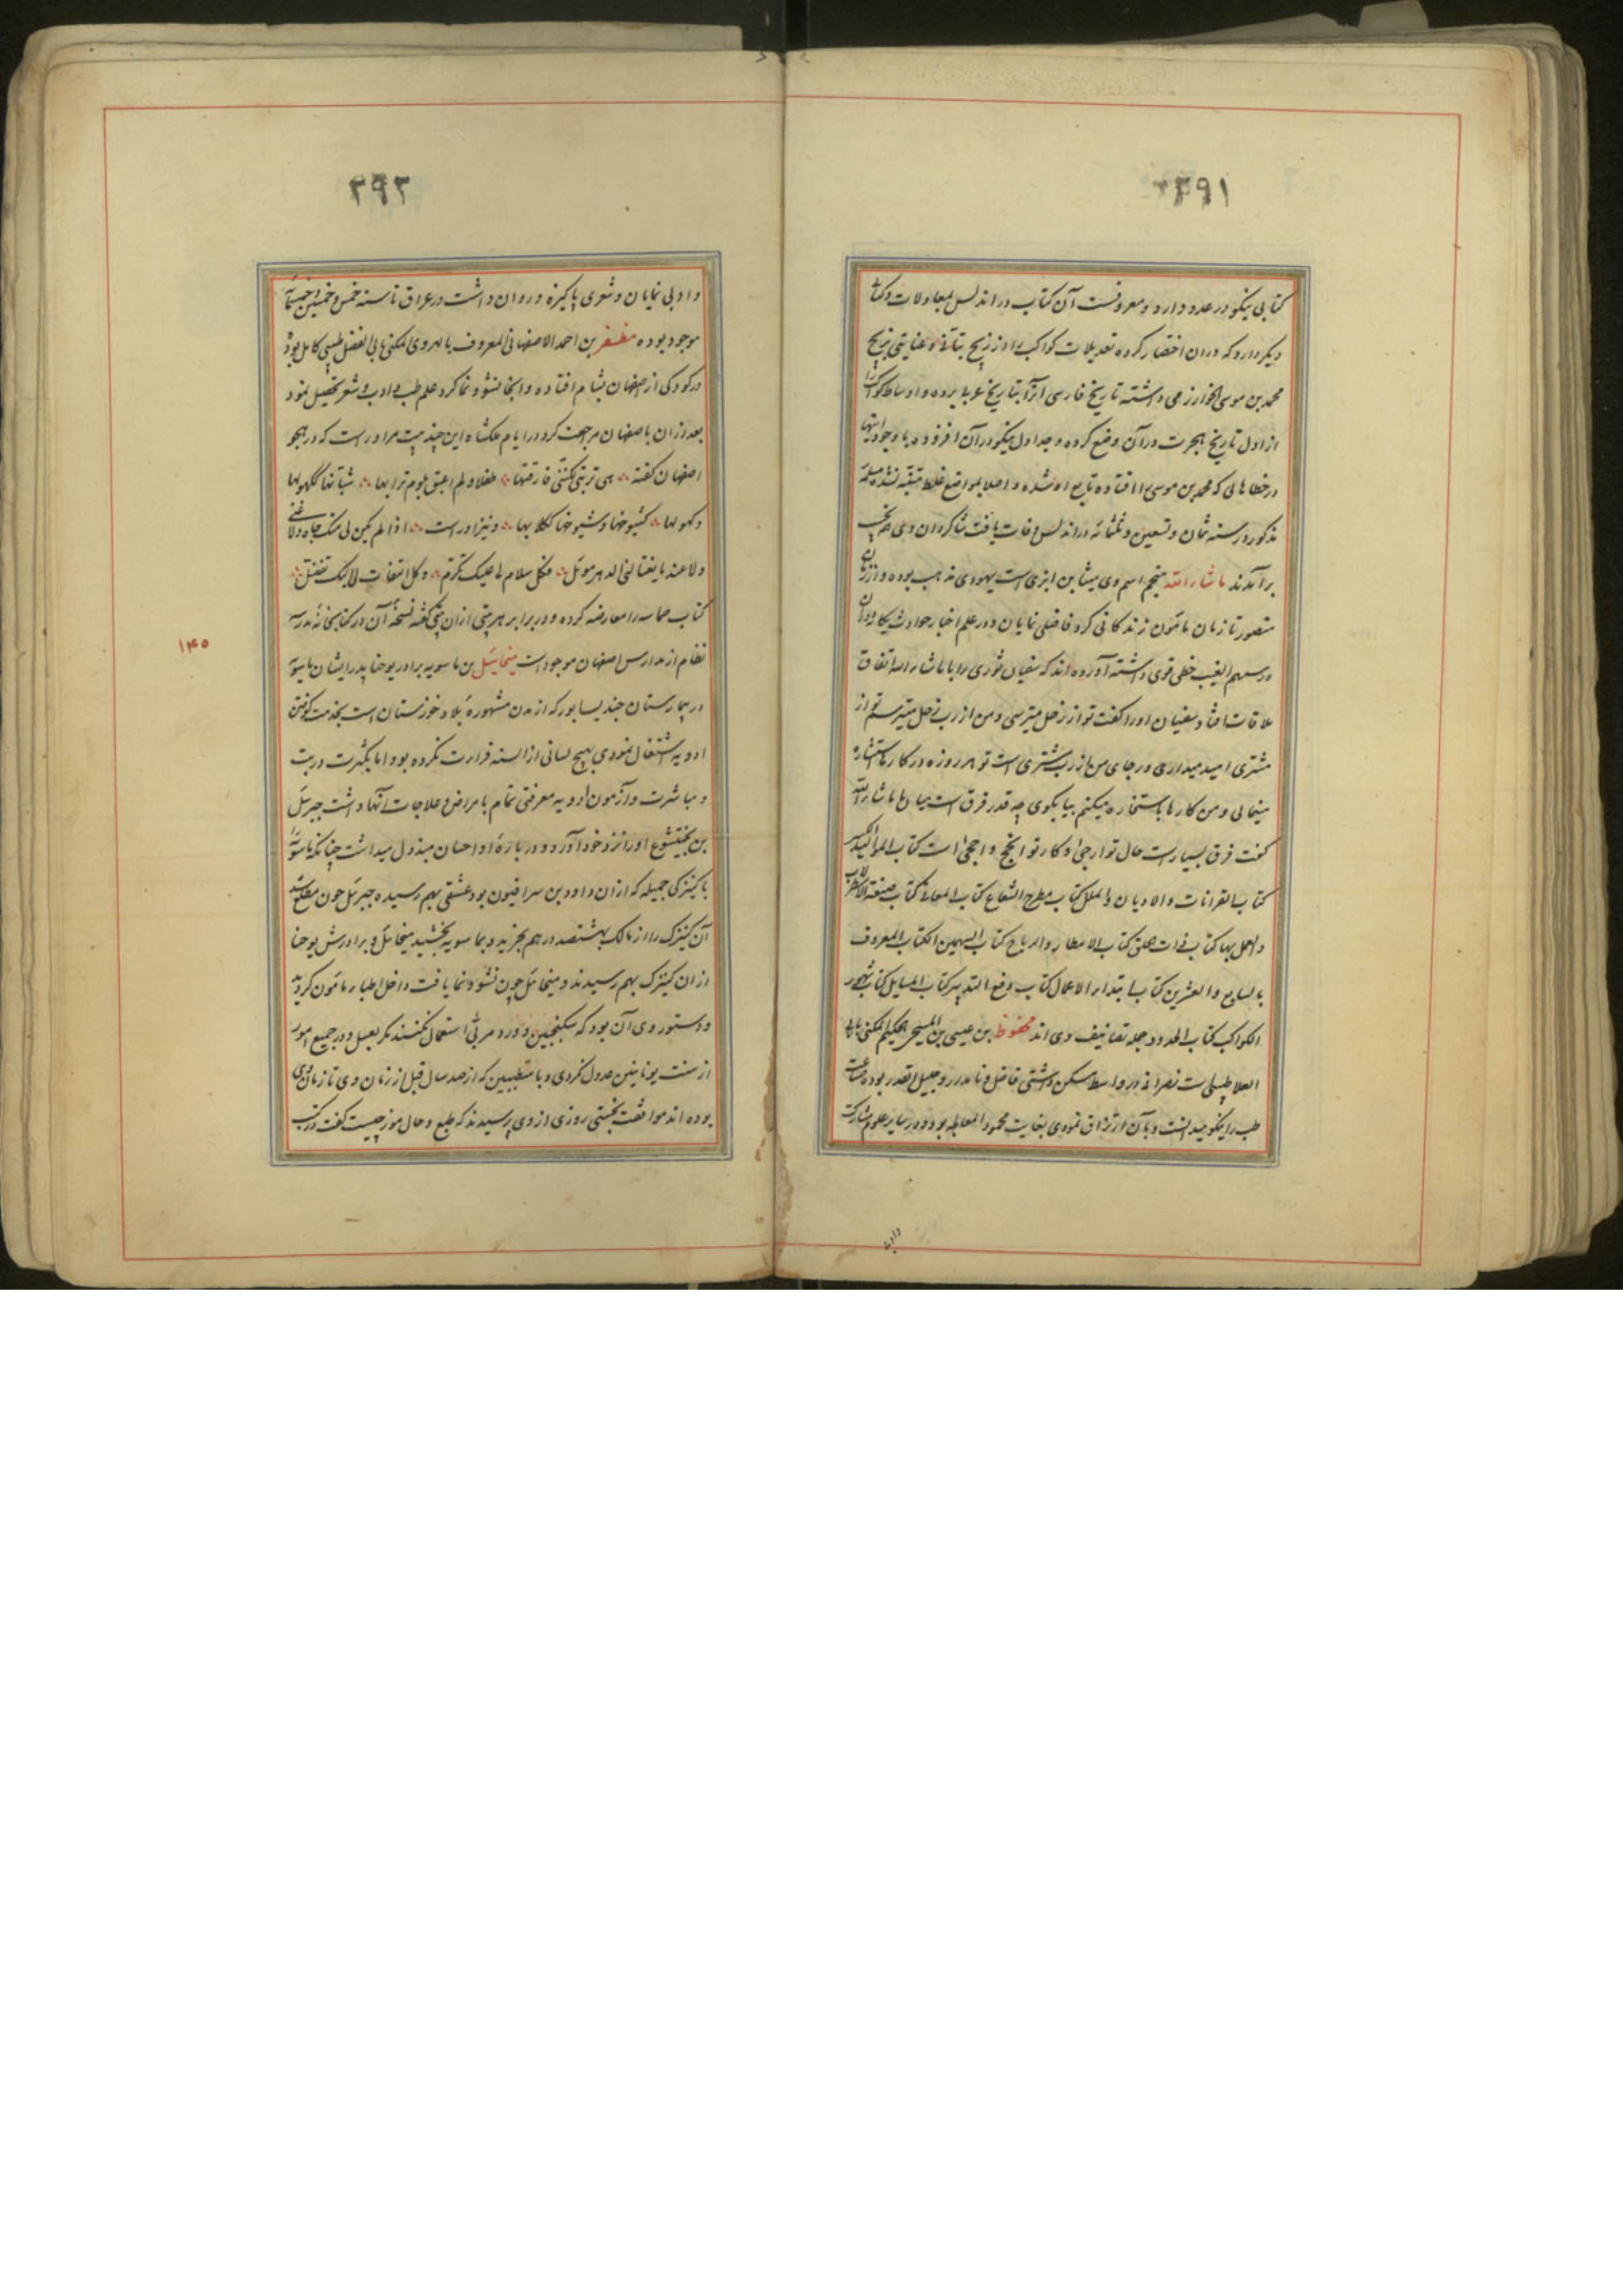 ۲۹۱
کتابی نیکو در عدد دارد و معروفست آن کتاب در اندلس بمعاملات و کتا
دیگر دارد که در ان اختصار کرده تعدیلات کواکب را از زیج بتانی و عنایتی بزیج
محمد بن موسی الخوارزمی داشته تاریخ فارسی انرا بتاریخ عربی برده و اوساط کواکب را
از اول تاریخ هجرت در آن وضع کرده و جداول نیکو در آن افزوده با وجود اینها
در خطاهائی که محمد بن موسی را افتاده تابع او شده و اصلا بمواضع غلط متنبه نشده مسلمه
مذکور در سنه ثمان و تسعین و ثلثمائه در اندلس وفات یافت شاکردان وی صاحب
برآمدند ماشاء الله منجم اسم وی میشا بن ابری است یهودی مذهب بوده و از زمان
منصور تا زمان مامون زندکانی کرد فاضلی نمایان و در علم اخبار حوادث یکانه دوران
و در سهم الغیب خطی قوی داشته آورده اند که سفیان ثوری را با ماشاء الله اتفاق
ملاقات افتاد سفیان او را کفت تو از زحل میترسی و من از رب زحل میترسم تو از
مشتری امید میداری و رجای من از رب مشتری است تو هر روزه در کارها استشاره
مینمائی و من کارها باستخاره میکنم بیا بکوی چه قدر فرق است میان ما ماشاء الله
کفت فرق بسیار است حال تو ارجی و کار تو انجح و احجی است کتاب الموالید الکبیر
کتاب القرانات و الادیان و الملل کتاب مطرح الشعاع کتاب المعانی کتاب صنعة الاسطرلاب
و العمل بها کتاب ذات الحلق کتاب الامطار و الریاح کتاب السهمین الکتاب المعروف
بالسابع و العشرین کتاب ابتداء الاعمال کتاب دفع التدبیر کتاب المسایل کتاب شهور
الکواکب کتاب الحدود جمله تصانیف وی اند محفوظ بن عیسی بن المسیحی الحکیم المکنی بابی
العلا طبیبی است نصرانی در واسط مسکن داشتی فاضل و نامدار و جلیل القدر بوده صناعت
طب را نیکو میدانست و بآن ارتزاق نمودی بغایت محمود المعالجه بود و در سایر علوم مشارکت
وادبی
۲۹۲
و ادبی نمایان و شعری پاکیزه و روان داشت در عراق تا سنه خمس و خمسین و خمسمائه
موجود بوده مظفر بن احمد الاصفهانی المعروف بالهروی المکنی بابی الفضل طبیبی کامل بود
در کودکی از اصفهان بشام افتاده و انجا نشو و نما کرد علم طب و ادب و شعر تحصیل نمود
بعد از ان باصفهان مراجعت کرد در ایام ملکشاه این چند بیت مر او راست که در هجو
اصفهان کفته هی تربتی لکننی فارقتها طفلا و لم اعبق بلوم ترابها شبانها ککهولها
و کهولها کشیوخها و شیوخها ککلابها و نیز او راست اذا لم یکن لی منک جاه و لا غنی
و لا عند ما یغتالنی الدهر موئل فکل سلام لی علیک تکرم و کل التفات لی الیک تفضل
کتاب حماسه را معارضه کرده و در برابر هر بیتی از ان بیتی کفته نسخه آن در کتابخانه مدرسه
نظام از مدارس اصفهان موجود است میخائیل بن ماسویه برادر یوحنا پدر ایشان ماسویه
در بیمارستان جندیسابور که از مدن مشهوره بلاد خوزستان است بخدمت کوفتن
ادویه اشتغال نمودی بهیچ لسانی از السنه قراءت نکرده بود اما بکثرت دربت
و مباشرت و آزمون ادویه معرفتی تمام بامراض و علاجات آنها داشت جبرئیل
بن بختیشوع او را نزد خود آورد و در باره او احسان مبذول میداشت چنانکه ماسویه را
با کنیزکی جمیله که از ان داود بن سرافیون بود عشقی بهم رسیده جبرئیل چون مطلع شد
آن کنیزک را از مالک بهشتصد درهم بخرید و بماسویه بخشید میخائیل و برادرش یوحنا
از ان کنیزک بهم رسیدند و میخائیل چون نشو و نما یافت داخل اطباء مامون کردید
و دستور وی آن بود که سکنجبین و ورد مربی استعمال نکنند مکر بعسل و در جمیع امور
از سنت یونانیین عدول نکردی و با متطببین که از صد سال قبل از زمان وی تا زمان وی
بوده اند موافقت نجستی روزی از وی پرسیدند که طبع و حال موز چیست کفت در کتب
۱۴۵